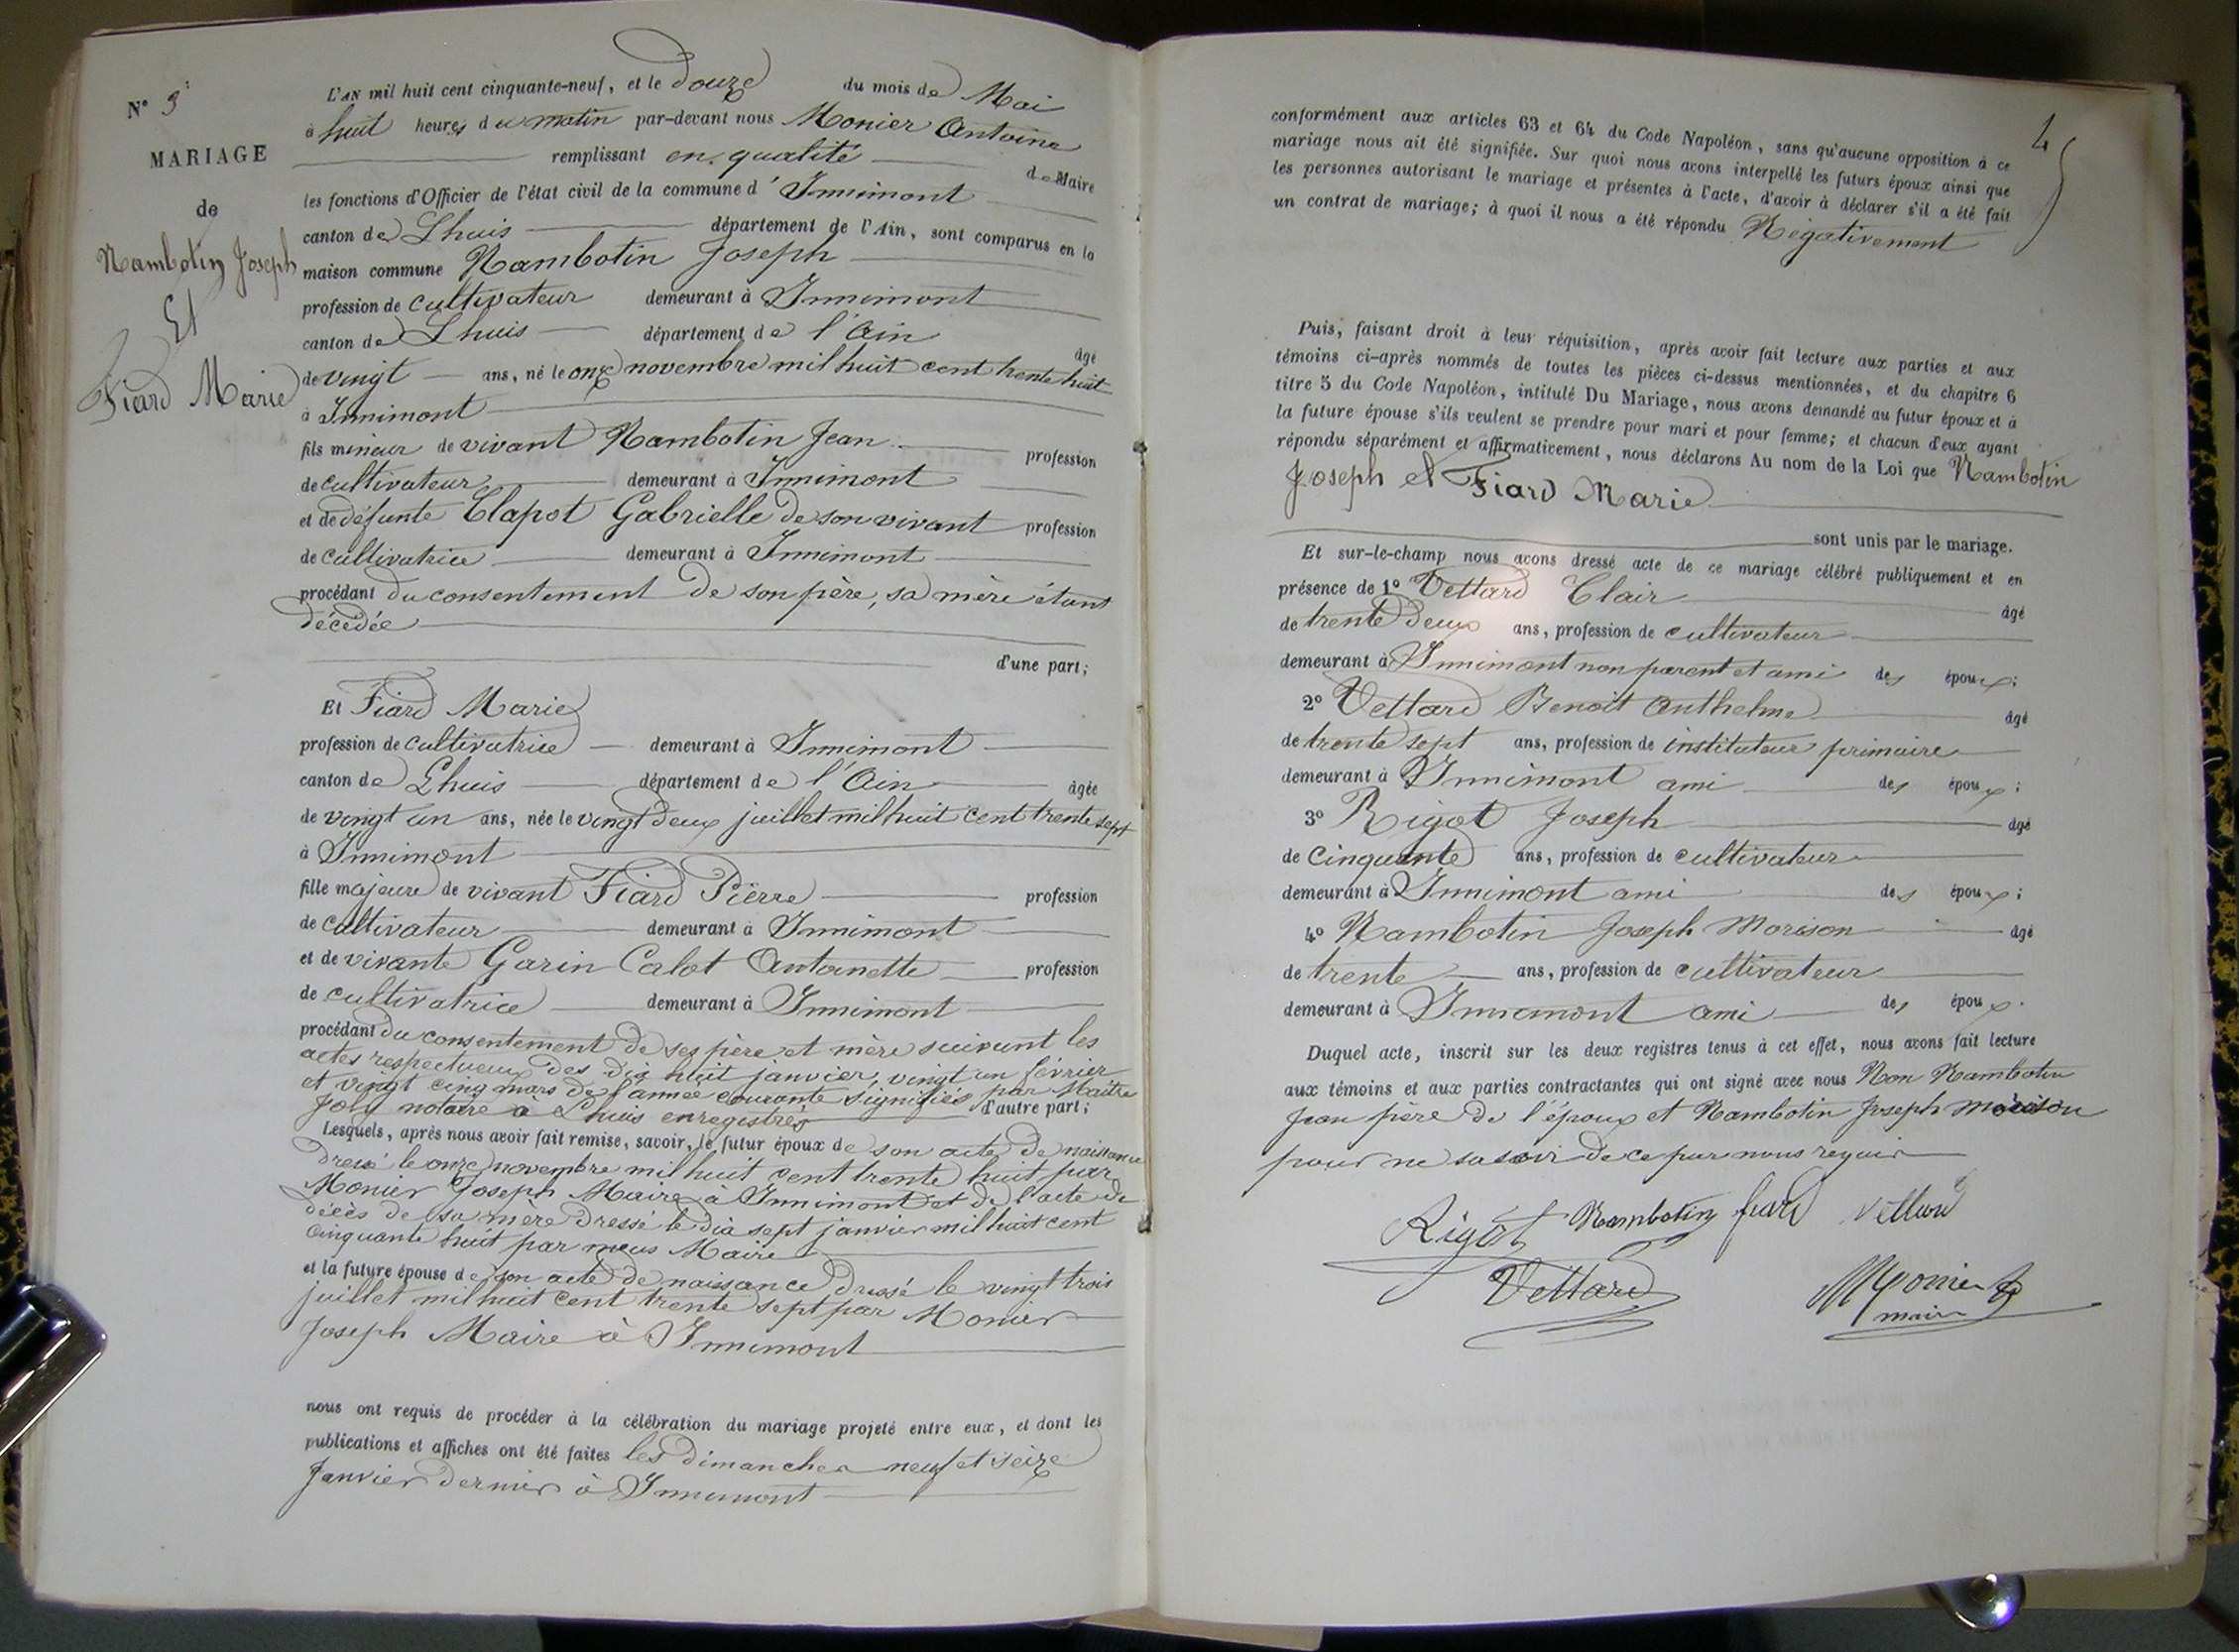 N° 3
MARIAGE
de
Nambotin Joseph
Et
Fiard Marie
L'AN mil huit cent cinquante-neuf, et le Douze du mois de Mai
à huit heures du matin par-devant nous Monier Antoine
remplissant en qualité de Maire
les fonctions d'Officier de l'état civil de la commune d'Innimont
canton de Lhuis département de l'Ain, sont comparus en la
maison commune Nambotin Joseph
profession de cultivateur demeurant à Innimont
canton de Lhuis département de l'Ain âgé
de vingt ans, né le onze novembre mil huit cent trente huit
à Innimont
fils mineur de vivant Nambotin Jean profession
de cultivateur demeurant à Innimont
et de défunte Clapot Gabrielle de son vivant profession
de cultivatrice demeurant à Innimont
procédant du consentement de son père, sa mère étant
décédée
d'une part;
Et Fiard Marie
profession de cultivatrice demeurant à Innimont
canton de Lhuis département de l'Ain âgée
de vingt un ans, née le vingt deux juillet mil huit cent trente sept
à Innimont
fille majeure de vivant Fiard Pierre profession
de cultivateur demeurant à Innimont
et de vivante Garin Calot Antoinette profession
de cultivatrice demeurant à Innimont
procédant du consentement de ses père et mère suivant les
actes respectueux des dix huit janvier, vingt un février
et vingt cinq mars de l'année courante signifiés par Maître
Joly notaire à Lhuis enregistrés d'autre part;
Lesquels, après nous avoir fait remise, savoir, le futur époux de son acte de naissance
dressé le onze novembre mil huit cent trente huit par
Monier Joseph Maire à Innimont et de l'acte de
décès de sa mère dressé le dix sept janvier mil huit cent
cinquante huit par nous Maire
et la future épouse de son acte de naissance dressé le vingt trois
juillet mil huit cent trente sept par Monier
Joseph Maire à Innimont
nous ont requis de procéder à la célébration du mariage projeté entre eux, et dont les
publications et affiches ont été faites les dimanches neuf et seize
Janvier dernier à Innimont
4
conformément aux articles 63 et 64 du Code Napoléon, sans qu'aucune opposition à ce
mariage nous ait été signifiée. Sur quoi nous avons interpellé les futurs époux ainsi que
les personnes autorisant le mariage et présentes à l'acte, d'avoir à déclarer s'il a été fait
un contrat de mariage; à quoi il nous a été répondu Négativement
Puis, faisant droit à leur réquisition, après avoir fait lecture aux parties et aux
témoins ci-après nommés de toutes les pièces ci-dessus mentionnées, et du chapitre 6
titre 5 du Code Napoléon, intitulé Du Mariage, nous avons demandé au futur époux et à
la future épouse s'ils veulent se prendre pour mari et pour femme; et chacun d'eux ayant
répondu séparément et affirmativement, nous déclarons Au nom de la Loi que Nambotin
Joseph et Fiard Marie
sont unis par le mariage.
Et sur-le-champ nous avons dressé acte de ce mariage célébré publiquement et en
présence de 1° Vettard Clair âgé
de trente deux ans, profession de cultivateur
demeurant à Innimont non parent et ami des époux;
2° Vettard Benoît Anthelme âgé
de trente sept ans, profession de instituteur primaire
demeurant à Innimont ami des époux;
3° Rigot Joseph âgé
de cinquante ans, profession de cultivateur
demeurant à Innimont ami des époux;
4° Nambotin Joseph Morison âgé
de trente ans, profession de cultivateur
demeurant à Innimont ami des époux.
Duquel acte, inscrit sur les deux registres tenus à cet effet, nous avons fait lecture
aux témoins et aux parties contractantes qui ont signé avec nous Non Nambotin
Jean père de l'époux et Nambotin Joseph Morison
pour ne savoir de ce par nous requis
Rigot Nambotin fiard Vettard
Vettard Monier
maire